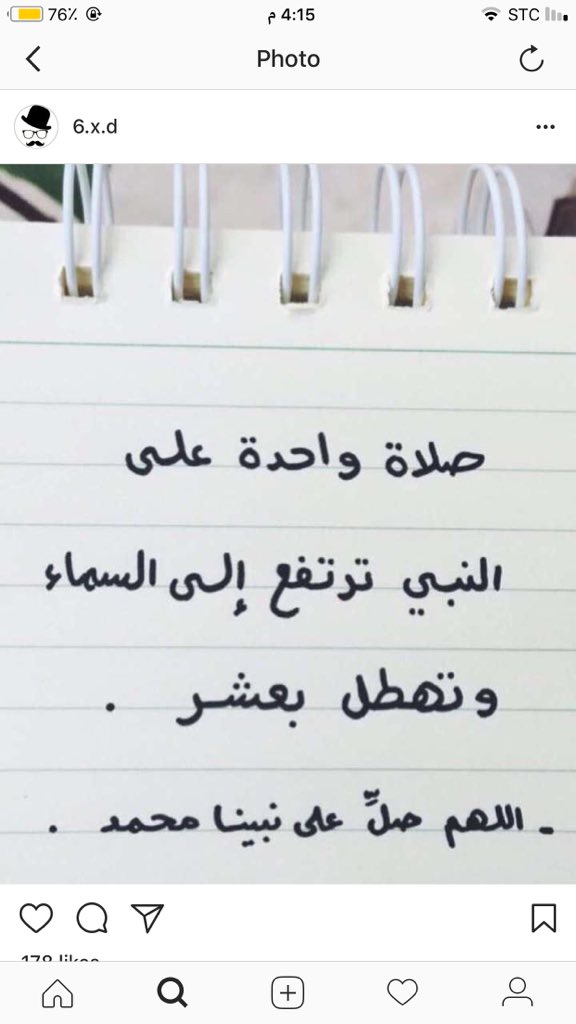 76% 4:15 م STC
Photo
6.x.d
صلاة واحدة على
النبي ترتفع إلى السماء
وتهطل بعشر .
ـ اللهم صلِّ على نبينا محمد .
178 likes